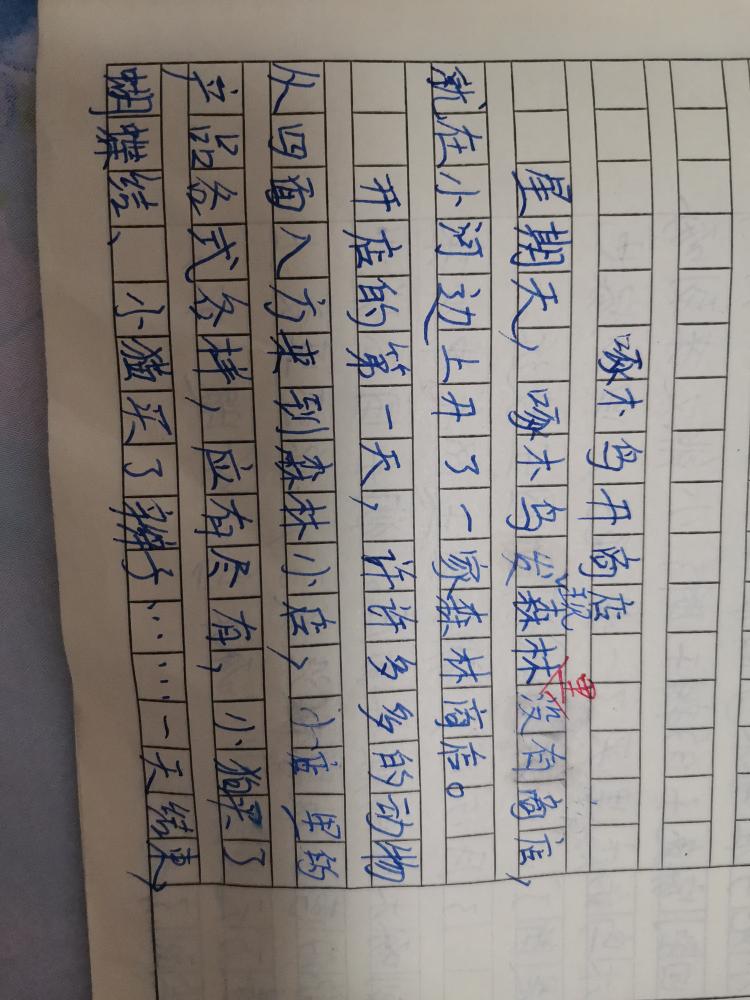 啄木鸟开商店
星期天，啄木鸟发现森林里没有商店，
就在小河边上开了一家森林商店。
开店的第一天，许许多多的动物
从四面八方来到森林小店，小店里的
产品各式各样，应有尽有，小狗买了
蝴蝶结、小猪买了辫子……一天结束，